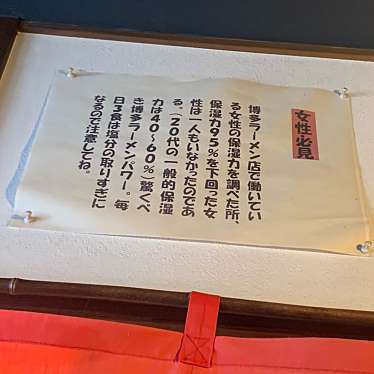 女性必見
博多ラーメン店で働いてい
る女性の保湿力を調べた所、
保湿力95%を下回った女
性は一人もいなかったのであ
る。(20代の一般的保湿
力は40~60%)驚くべ
き博多ラーメンパワー。毎
日3食は塩分の取りすぎに
なるので注意してね。